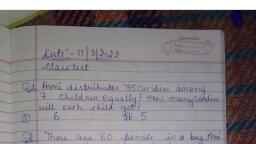 Date :- 11/3/2022
Class test
Q1 Avni distributes 35 candies among
7 children equally? How many candies
will each child get?
① 6 ② 5
Q2 There are 60 pencils in a bag, Avni